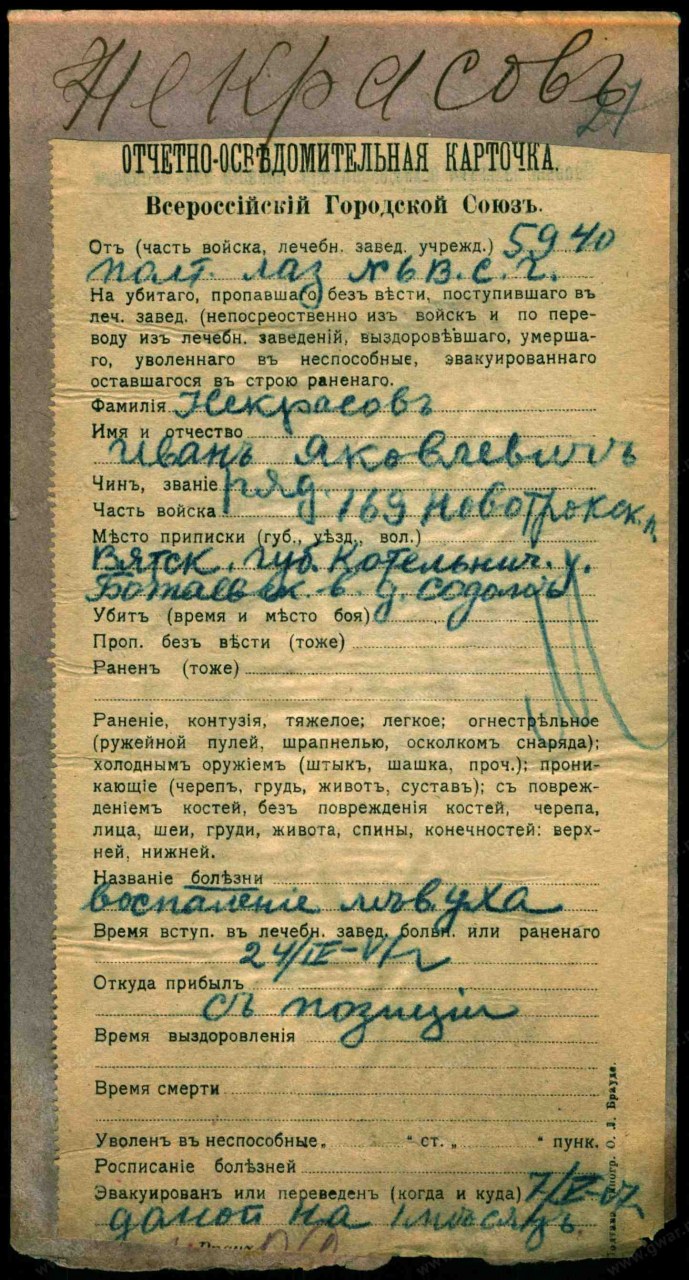 Некрасовъ
ОТЧЕТНО-ОСВѢДОМИТЕЛЬНАЯ КАРТОЧКА.
Всероссійскій Городской Союзъ.
Отъ (часть войска, лечебн. завед. учрежд.) 5940
полт. лаз №6 В.С.Г.
На убитаго, пропавшаго безъ вѣсти, поступившаго въ
леч. завед. (непосреоственно изъ войскъ и по пере-
воду изъ лечебн. заведеній, выздоровѣвшаго, умерша-
го, уволеннаго въ неспособные, эвакуированнаго
оставшагося въ строю раненаго.
Фамилія Некрасовъ
Имя и отчество
Иванъ Яковлевичъ
Чинъ, званіе ряд.
Часть войска 169 Новотрокск. п.
Мѣсто приписки (губ., уѣзд., вол.)
Вятск. губ. Котельнич. у.
в. д.
Убитъ (время и мѣсто боя)
Проп. безъ вѣсти (тоже)
Раненъ (тоже)
Раненіе, контузія, тяжелое; легкое; огнестрѣльное
(ружейной пулей, шрапнелью, осколкомъ снаряда);
холоднымъ оружіемъ (штыкъ, шашка, проч.); прони-
кающіе (черепъ, грудь, животъ, суставъ); съ повреж-
деніемъ костей, безъ поврежденія костей, черепа,
лица, шеи, груди, живота, спины, конечностей: верх-
ней, нижней.
Названіе болѣзни
воспаленіе лѣв. уха
Время вступ. въ лечебн. завед. больн. или раненаго
24/IV
Откуда прибылъ
съ позиціи
Время выздоровленія
Время смерти
Уволенъ въ неспособные „ “ ст. „ “ пунк.
Росписаніе болѣзней
Эвакуированъ или переведенъ (когда и куда) 7/V
домой на 1 мѣсяцъ.
О. Л. Брауде.